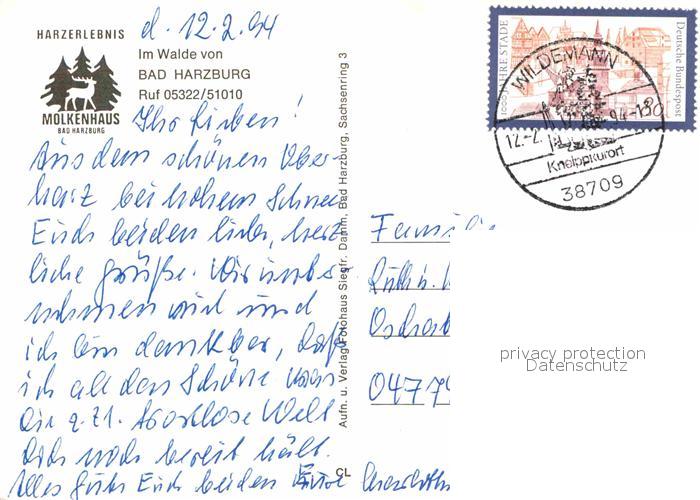 HARZERLEBNIS
MOLKENHAUS
BAD HARZBURG
Im Walde von
BAD HARZBURG
Ruf 05322/51010
d. 12.2.94
Ihr Lieben!
Aus dem schönen Ober-
harz bei hohem Schnee
Euch beiden liebe, herz-
liche Grüße. Wir unter-
nehmen viel und
ich bin dankbar, daß
ich all das Schöne was
die z. Zt. trostlose Welt
noch bereit hält.
Alles Gute Euch beiden Eure
Aufn. u. Verlag Fotohaus Siegfr. Damm, Bad Harzburg, Sachsenring 3
CL
1000 JAHRE STADE
Deutsche Bundespost
WILDEMANN
12.-2. 94-13
Kneippkurort
38709
Famili
Ruth u.
Oschat
0477
privacy protection
Datenschutz